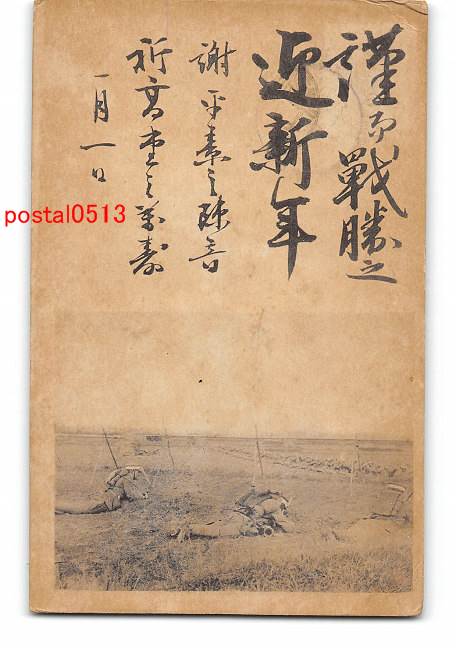 謹而戦勝之
迎新年
謝平素之疎音
祈高堂之萬壽
一月一日
postal0513